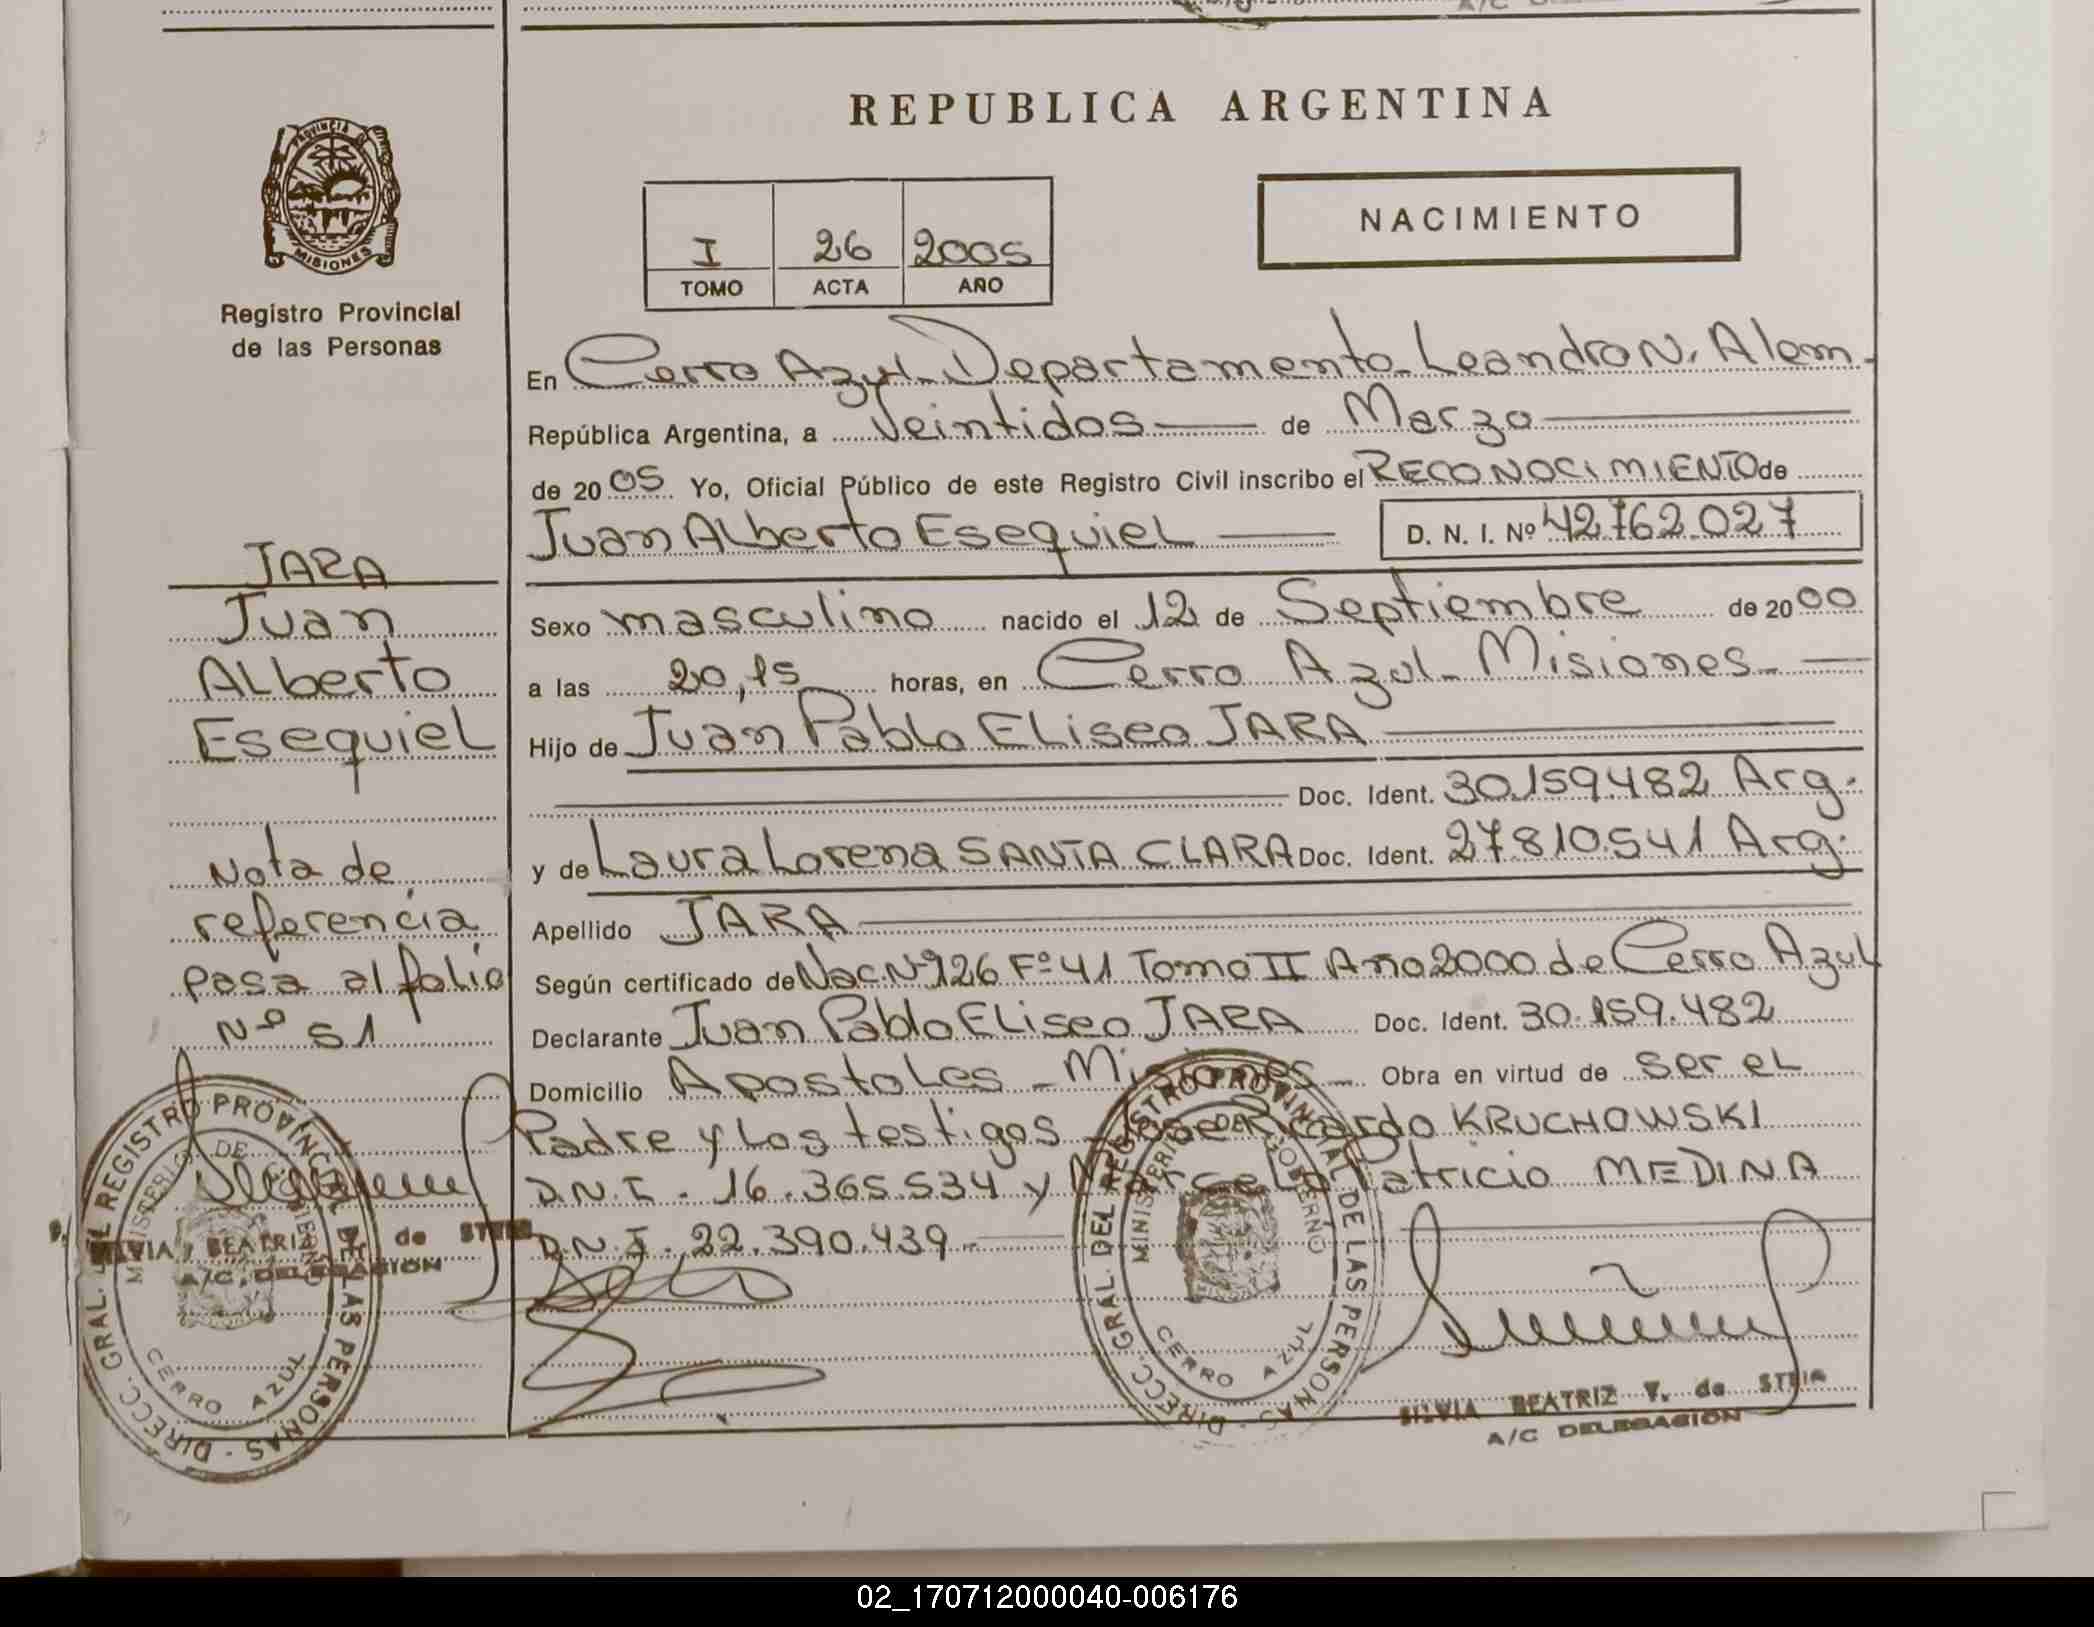 REPUBLICA ARGENTINA
PROVINCIA DE
MISIONES
Registro Provincial
de las Personas
I 26 2005
TOMO ACTA AÑO
NACIMIENTO
En Cerro Azul - Departamento - Leandro N. Alem -
República Argentina, a Veintidos de Marzo
de 2005 Yo, Oficial Público de este Registro Civil inscribo el RECONOCIMIENTO de
Juan Alberto Esequiel D. N. I. Nº 42.762.027
Sexo masculino nacido el 12 de Septiembre de 2000
a las 20,15 horas, en Cerro Azul - Misiones -
Hijo de Juan Pablo Eliseo JARA
Doc. Ident. 30.159.482 Arg.
y de Laura Lorena SANTA CLARA Doc. Ident. 27.810.541 Arg.
Apellido JARA
Según certificado de Nac. Nº 126 Fº 41 Tomo II Año 2000 de Cerro Azul
Declarante Juan Pablo Eliseo JARA Doc. Ident. 30.159.482
Domicilio Apostoles - Misiones - Obra en virtud de ser el
Padre y los testigos Ricardo KRUCHOWSKI
D.N.I. 16.365.534 y Marcelo Patricio MEDINA
D.N.I. 22.390.439 -
JARA
Juan
Alberto
Esequiel
Nota de
referencia
pasa al folio
Nº 51
DIRECC. GRAL. DEL REGISTRO PROVINCIAL DE LAS PERSONAS -
MINISTERIO DE GOBIERNO
CERRO AZUL
SILVIA BEATRIZ V. de STEIN
A/C. DELEGACION
DIRECC. GRAL. DEL REGISTRO PROVINCIAL DE LAS PERSONAS -
MINISTERIO DE GOBIERNO
CERRO AZUL
SILVIA BEATRIZ V. de STEIN
A/C DELEGACION
02_170712000040-006176